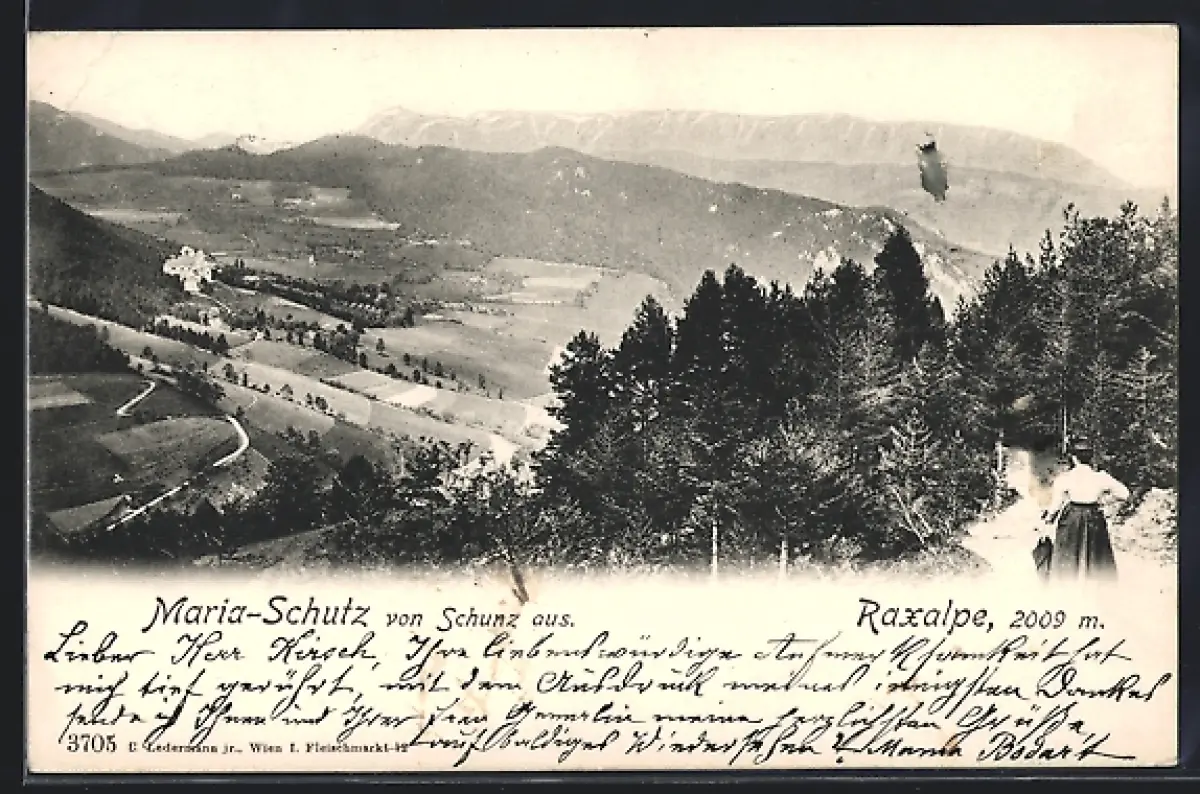 Maria-Schutz von Schunz aus.
Raxalpe, 2009 m.
Lieber Herr Kirsch, Ihre liebenswürdige Aufmerksamkeit hat
mich tief gerührt, mit dem Ausdruck meines innigsten Dankes
sende ich Ihnen und Ihrer Frau Gemahlin meine herzlichsten Grüße,
auf baldiges Wiedersehen Mama
3705 C Ledermann jr., Wien I. Fleischmarkt 12